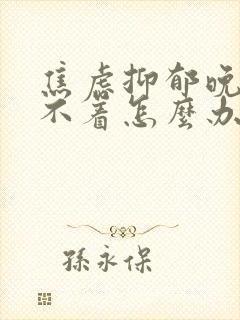 焦虑抑郁晚
不着怎麽办
孫永保